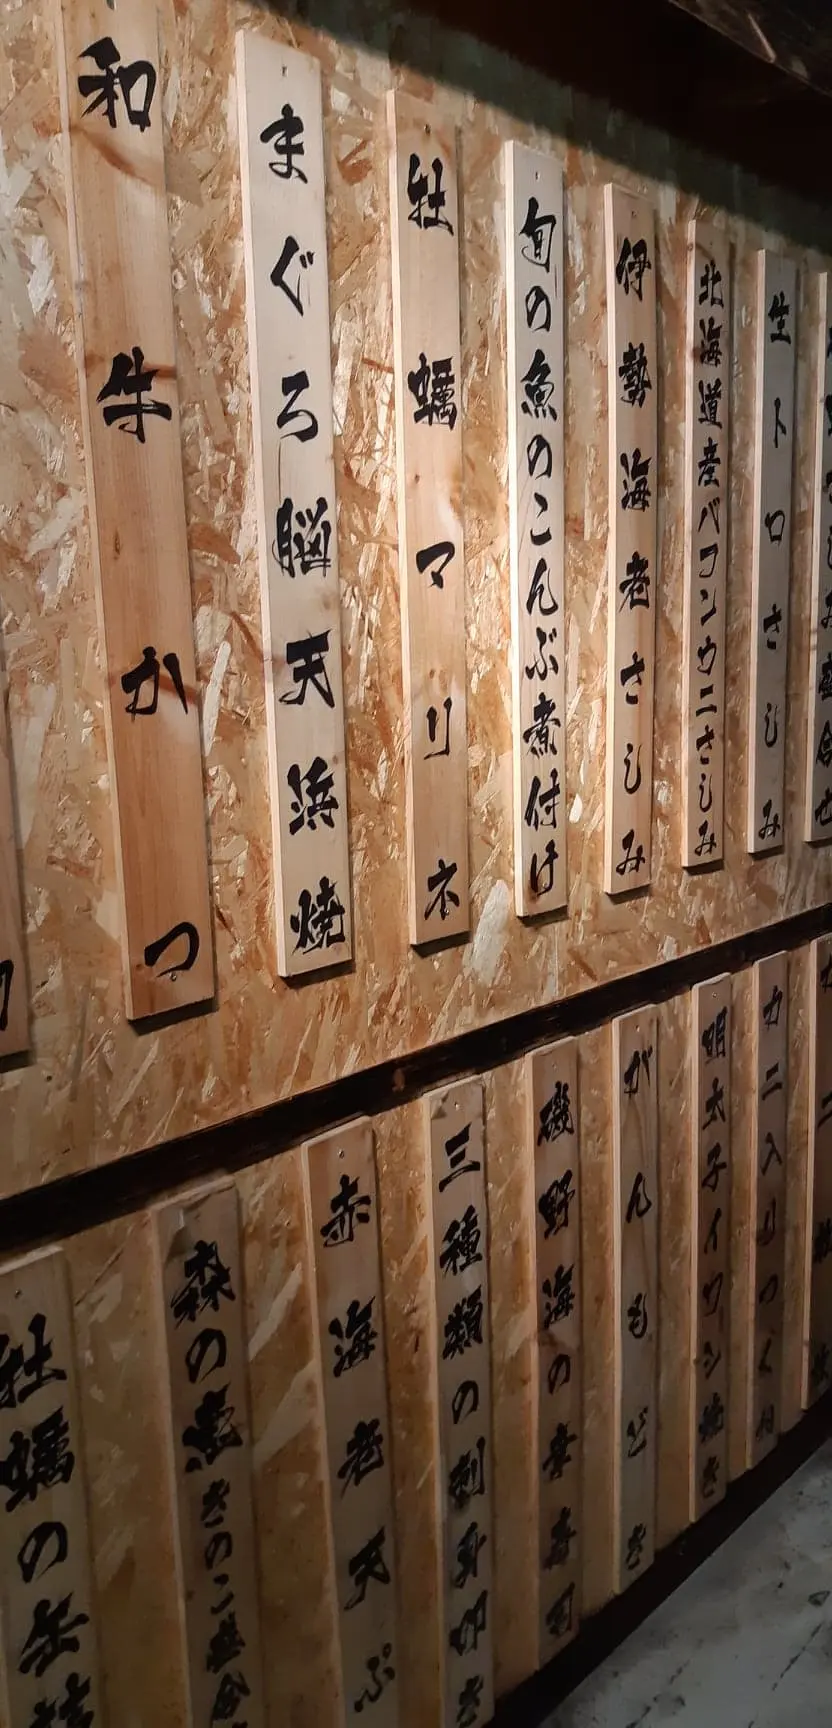 和牛かつ
まぐろ脳天浜焼
牡蠣マリネ
旬の魚のこんぶ煮付け
伊勢海老さしみ
北海道産バフンウニさしみ
生トロさしみ
牡蠣の缶
森の
きのこ
赤海老天ぷ
三種類の刺身
磯野海の幸
がんもどき
明太子イワシ焼き
カニ入りつくね